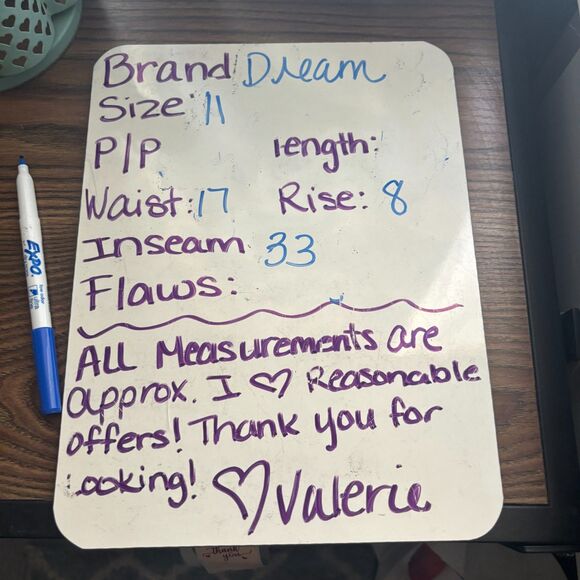 Brand Dream
Size: 11
P/P length:
Waist: 17 Rise: 8
Inseam 33
Flaws:
ALL Measurements are
approx. I ♡ Reasonable
offers! Thank you for
Looking! ♡ Valerie
EXPO
thank you